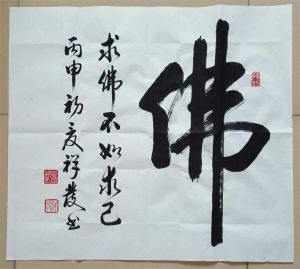 佛
求佛不如求己
丙申初夏祥发书